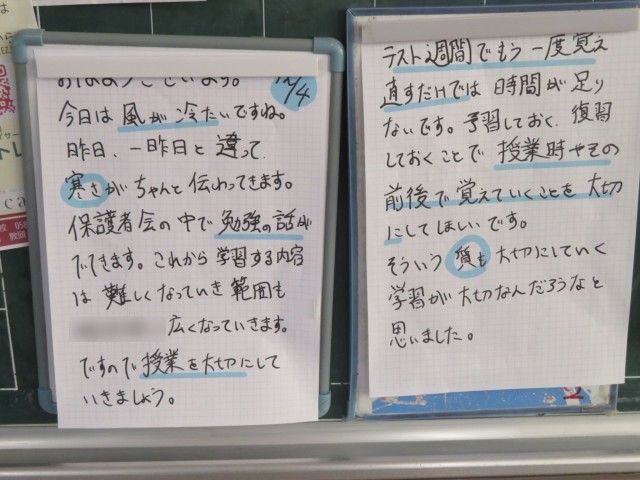 おはようございます。 12/4
今日は風が冷たいですね。
昨日、一昨日と違って
寒さがちゃんと伝わってきます。
保護者会の中で勉強の話が
でてきます。これから学習する内容
は難しくなっていき範囲も
広くなっていきます。
ですので授業を大切にして
いきましょう。
テスト週間でもう一度覚え
直すだけでは時間が足り
ないです。予習しておく、復習
しておくことで授業時やその
前後で覚えていくことを大切
にしてほしいです。
そういう質も大切にしていく
学習が大切なんだろうなと
思いました。